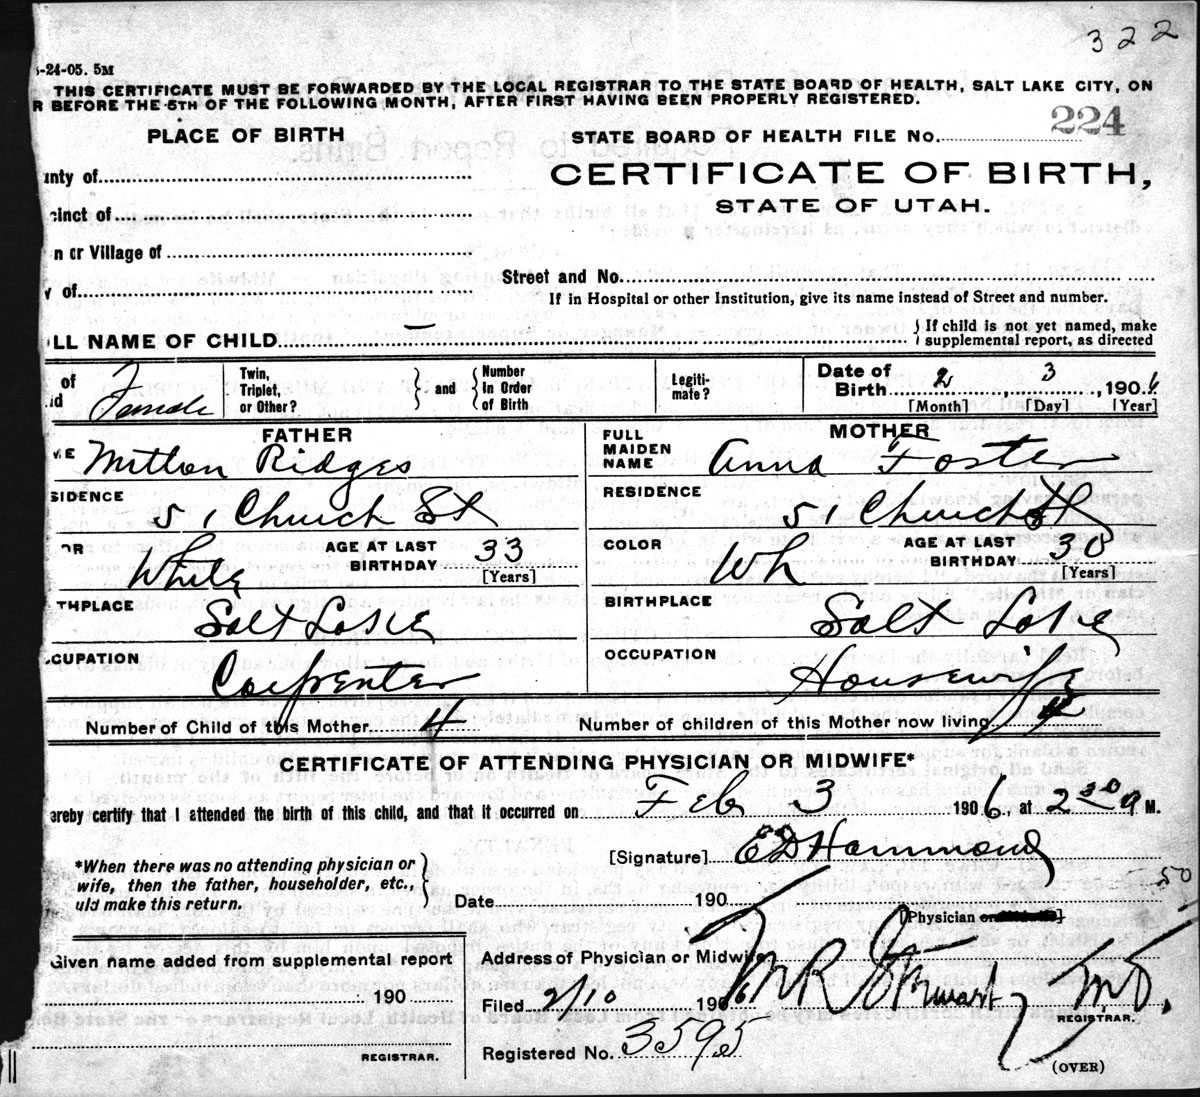 322
-24-05. 5M
THIS CERTIFICATE MUST BE FORWARDED BY THE LOCAL REGISTRAR TO THE STATE BOARD OF HEALTH, SALT LAKE CITY, ON
R BEFORE THE 5TH OF THE FOLLOWING MONTH, AFTER FIRST HAVING BEEN PROPERLY REGISTERED.
PLACE OF BIRTH
STATE BOARD OF HEALTH FILE No. 224
unty of
CERTIFICATE OF BIRTH,
cinct of
STATE OF UTAH.
n or Village of
Street and No.
y of
If in Hospital or other Institution, give its name instead of Street and number.
LL NAME OF CHILD —
If child is not yet named, make
supplemental report, as directed
of
ld
Female
Twin,
Triplet,
or Other?
and
Number
in Order
of Birth
Legiti-
mate?
Date of
Birth 2 3 1906
[Month] [Day] [Year]
FATHER
ME Milton Ridges
FULL
MAIDEN
NAME
MOTHER
Anna Foster
SIDENCE
51 Church St
RESIDENCE
51 Church St
OR
White
AGE AT LAST
BIRTHDAY 33
[Years]
COLOR
Wh
AGE AT LAST
BIRTHDAY 30
[Years]
THPLACE
Salt Lake
BIRTHPLACE
Salt Lake
CUPATION
Carpenter
OCCUPATION
Housewife
Number of Child of this Mother 4
Number of children of this Mother now living 4
CERTIFICATE OF ATTENDING PHYSICIAN OR MIDWIFE*
ereby certify that I attended the birth of this child, and that it occurred on Feb 3 1906, at 2 30 a M.
*When there was no attending physician or
wife, then the father, householder, etc.,
uld make this return.
[Signature] E D Hammond
50
Date 190
[Physician
Given name added from supplemental report
190
REGISTRAR.
Address of Physician or Midwife
Filed 2/10 1906 M R Stewart M.D.
REGISTRAR.
Registered No. 3595
(OVER)